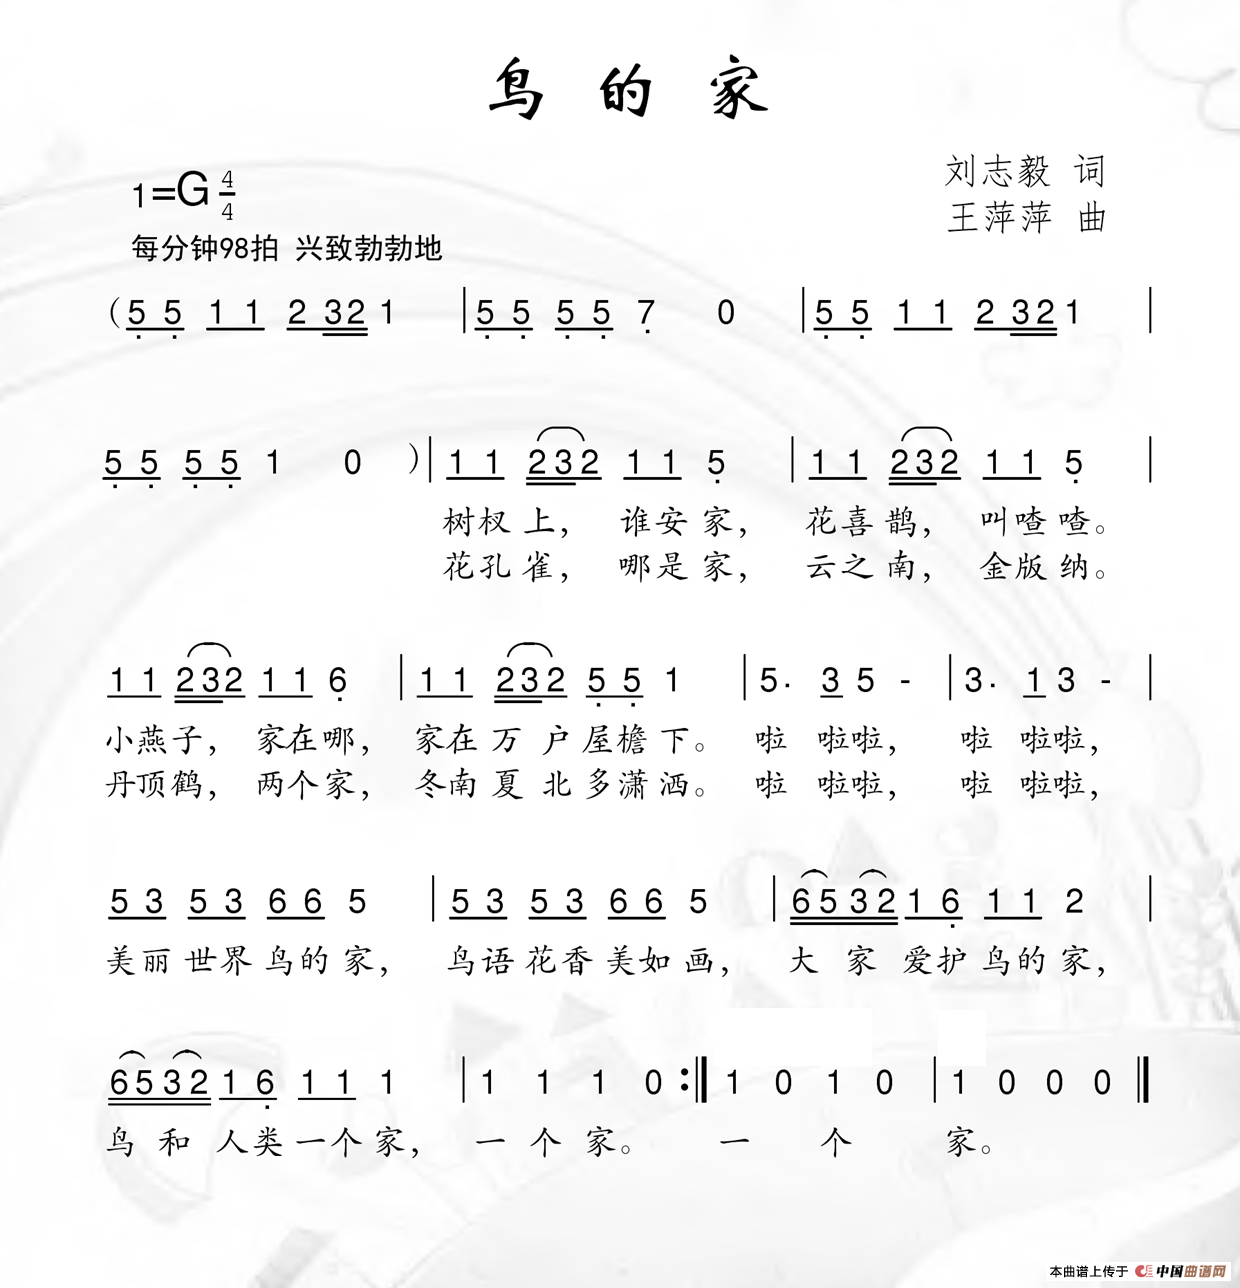 鸟的家
刘志毅 词
1=G 4/4
王萍萍 曲
每分钟98拍 兴致勃勃地
(5 5 1 1 2 32 1 | 5 5 5 5 7 0 | 5 5 1 1 2 32 1 |
5 5 5 5 1 0 ) | 1 1 232 1 1 5 | 1 1 232 1 1 5 |
树杈上， 谁安家， 花喜鹊， 叫喳喳。
花孔雀， 哪是家， 云之南， 金版纳。
1 1 232 1 1 6 | 1 1 232 5 5 1 | 5. 3 5 - | 3. 1 3 - |
小燕子， 家在哪， 家在万户屋檐下。 啦 啦啦， 啦 啦啦，
丹顶鹤， 两个家， 冬南夏北多潇洒。 啦 啦啦， 啦 啦啦，
5 3 5 3 6 6 5 | 5 3 5 3 6 6 5 | 6532 1 6 1 1 2 |
美丽世界鸟的家， 鸟语花香美如画， 大家爱护鸟的家，
6532 1 6 1 1 1 | 1 1 1 0 :|| 1 0 1 0 | 1 0 0 0 ||
鸟和人类一个家， 一个家。 一个家。
本曲谱上传于 中国曲谱网